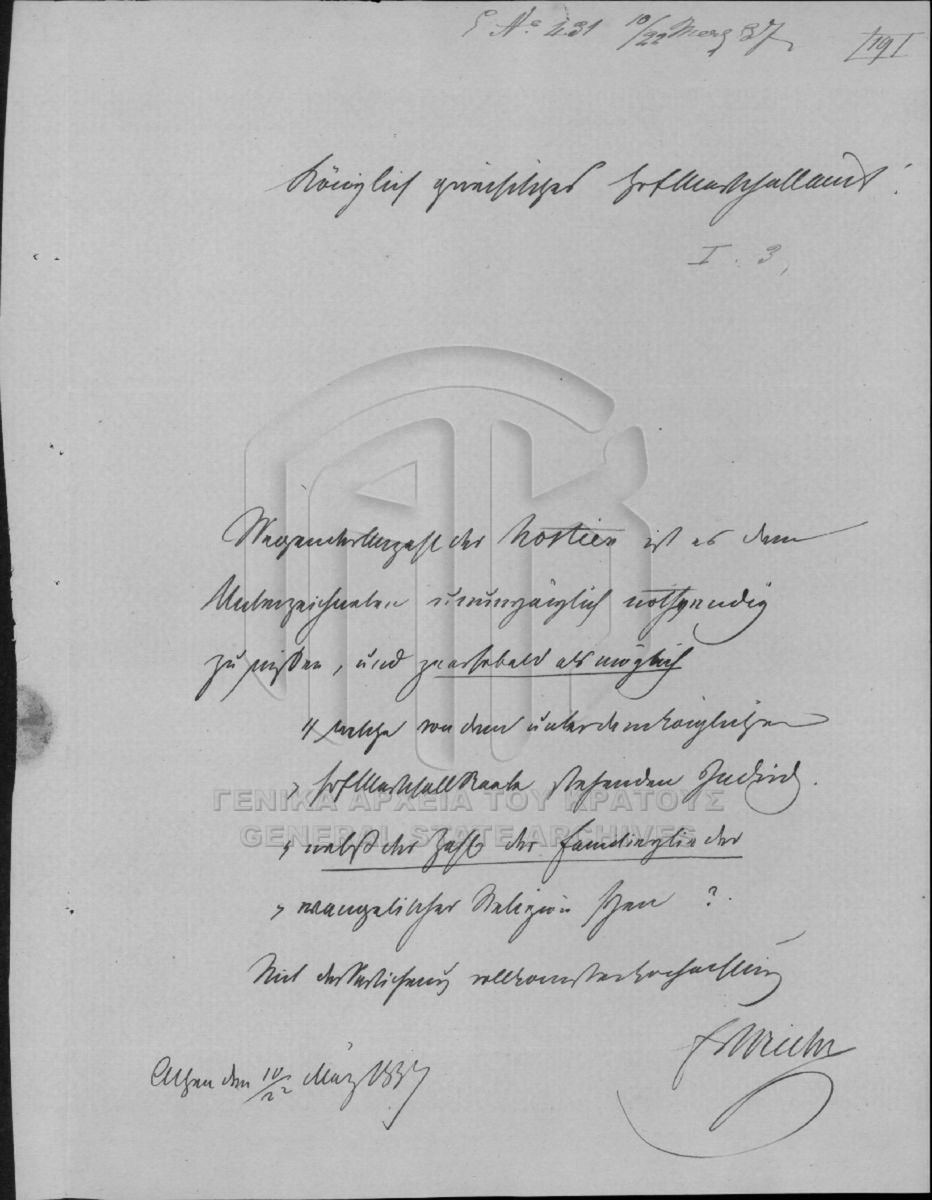 No 431 10/22 März 37
/19/
Königlich griechisches Hofmarschallamt!
I. 3,
Wegen der Anzahl der Hostien ist es dem
Unterzeichneten unumgänglich nothwendig
zu wissen, und zwar sobald als möglich
welche von dem unter dem königlichen
Hofmarschallstaabe stehenden Individ.
nebst der Zahl der Familienglieder
evangelischer Religion seyen ?
ΓΕΝΙΚΑ ΑΡΧΕΙΑ ΤΟΥ ΚΡΑΤΟΥΣ
GENERAL STATE ARCHIVES
Mit der Versicherung vollkommster Hochachtung
Athen den 10/22 März 1837